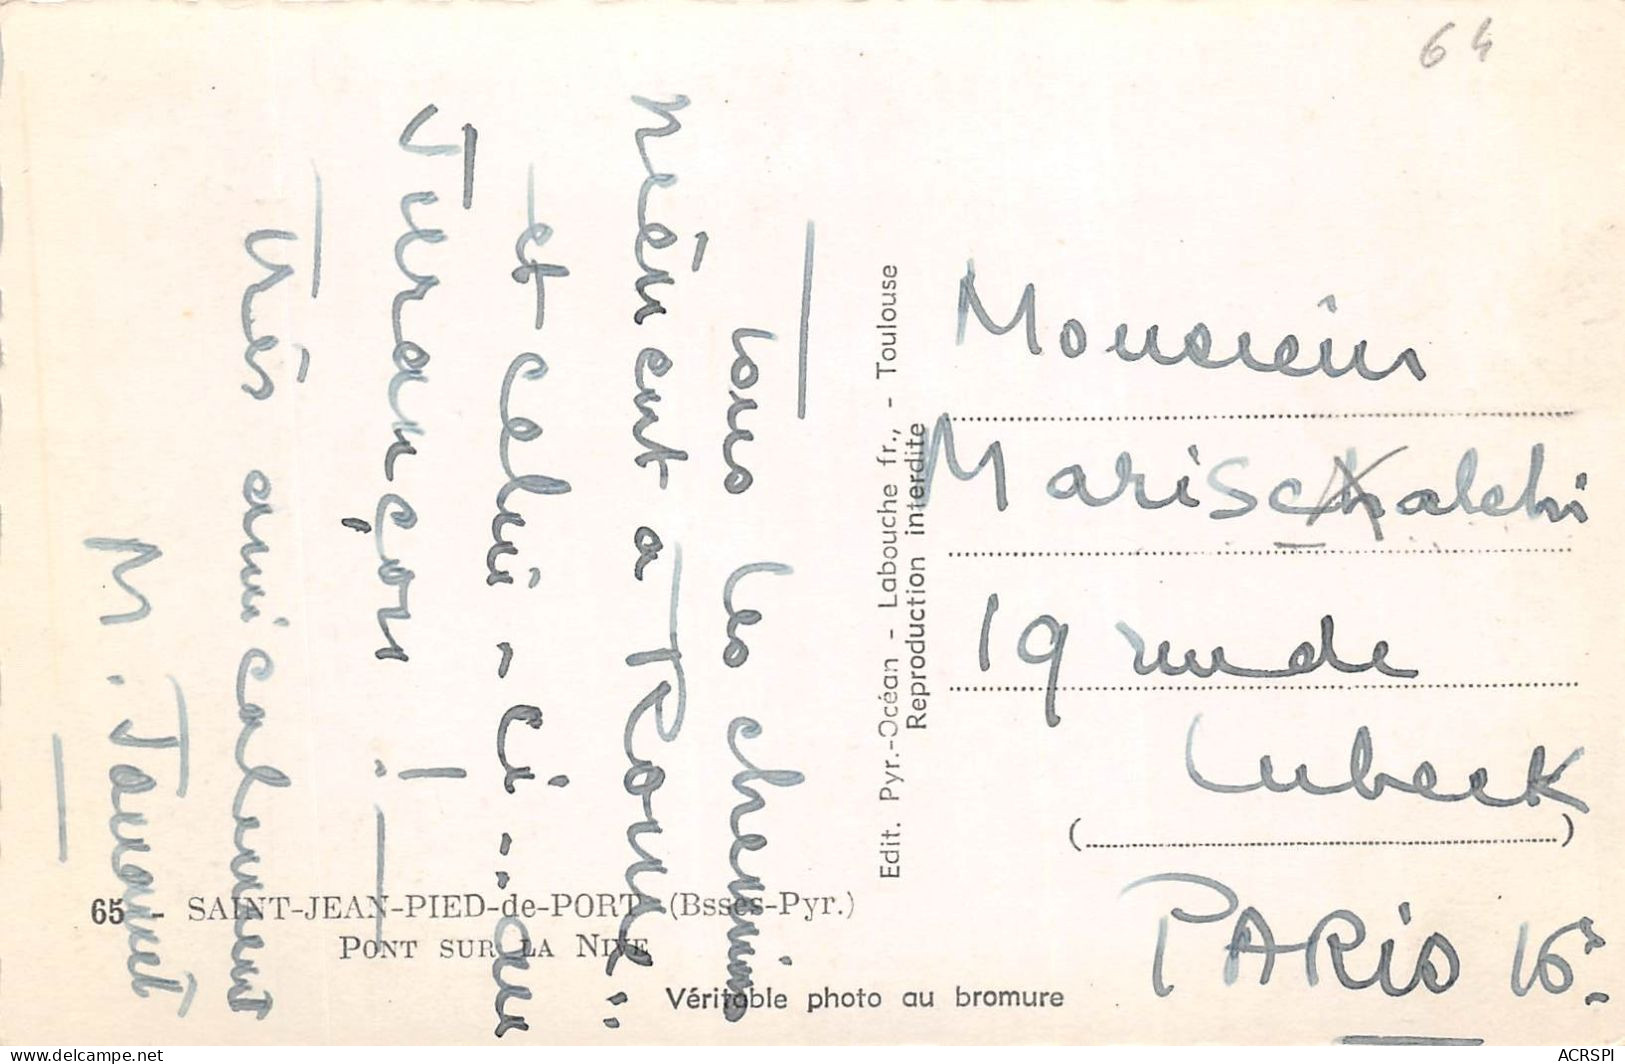 64
"Tous les chemins
mènent à Rome"..
et celui-ci.. au
Jurançon !
Très amicalement
M. Jacquet
Edit. Pyr.-Océan - Labouche fr., - Toulouse
Reproduction interdite
Monsieur
Marischalchi
19 rue de
Lubeck
(                    )
PARIS 16e.
65 - SAINT-JEAN-PIED-de-PORT (Bsses-Pyr.)
PONT SUR LA NIVE
Véritable photo au bromure
ACRSPI